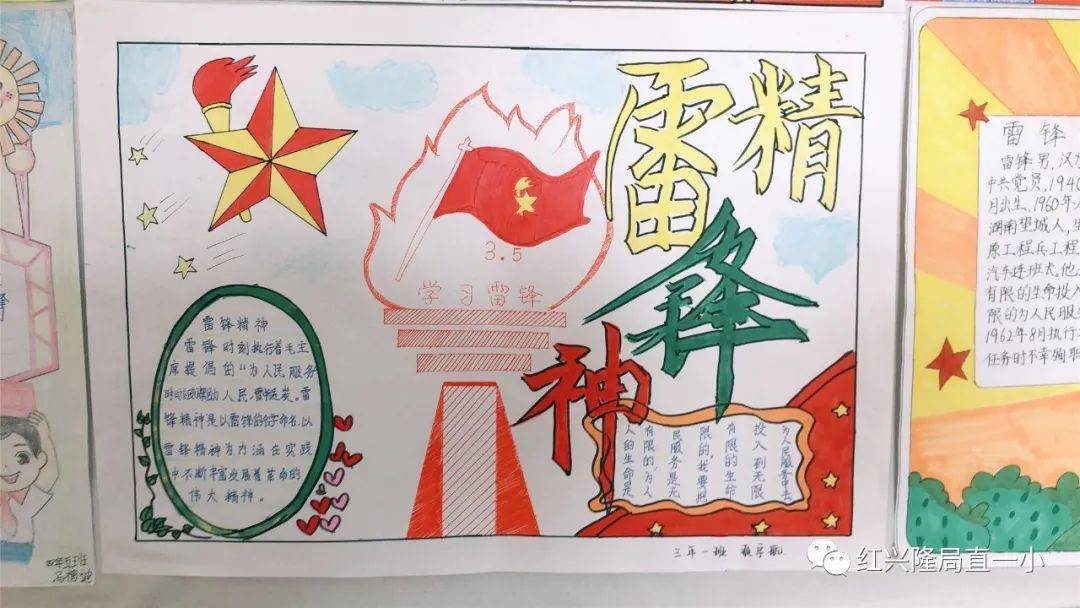 雷精
锋
神
3.5
学习雷锋
雷锋精神
雷锋时刻执行着毛主
席提倡的“为人民服务
人民,雪中送炭。雷
锋精神是以雷锋的名字命名,以
雷锋精神为内涵在实践
中不断丰富发展着革命的
伟大精神。
人的生命是
有限的,为人
民服务是无
限的,我要把
有限的生命
投入到无限
为人民服务中去
三年一班
雷锋
雷锋男,汉
中共党员,1940
月出生,1960年
湖南望城人,
原工程兵工程
汽车连班长。他
有限的生命投入
限的为人民服
1962年8月执行
任务时不幸殉
四年五班
红兴隆局直一小